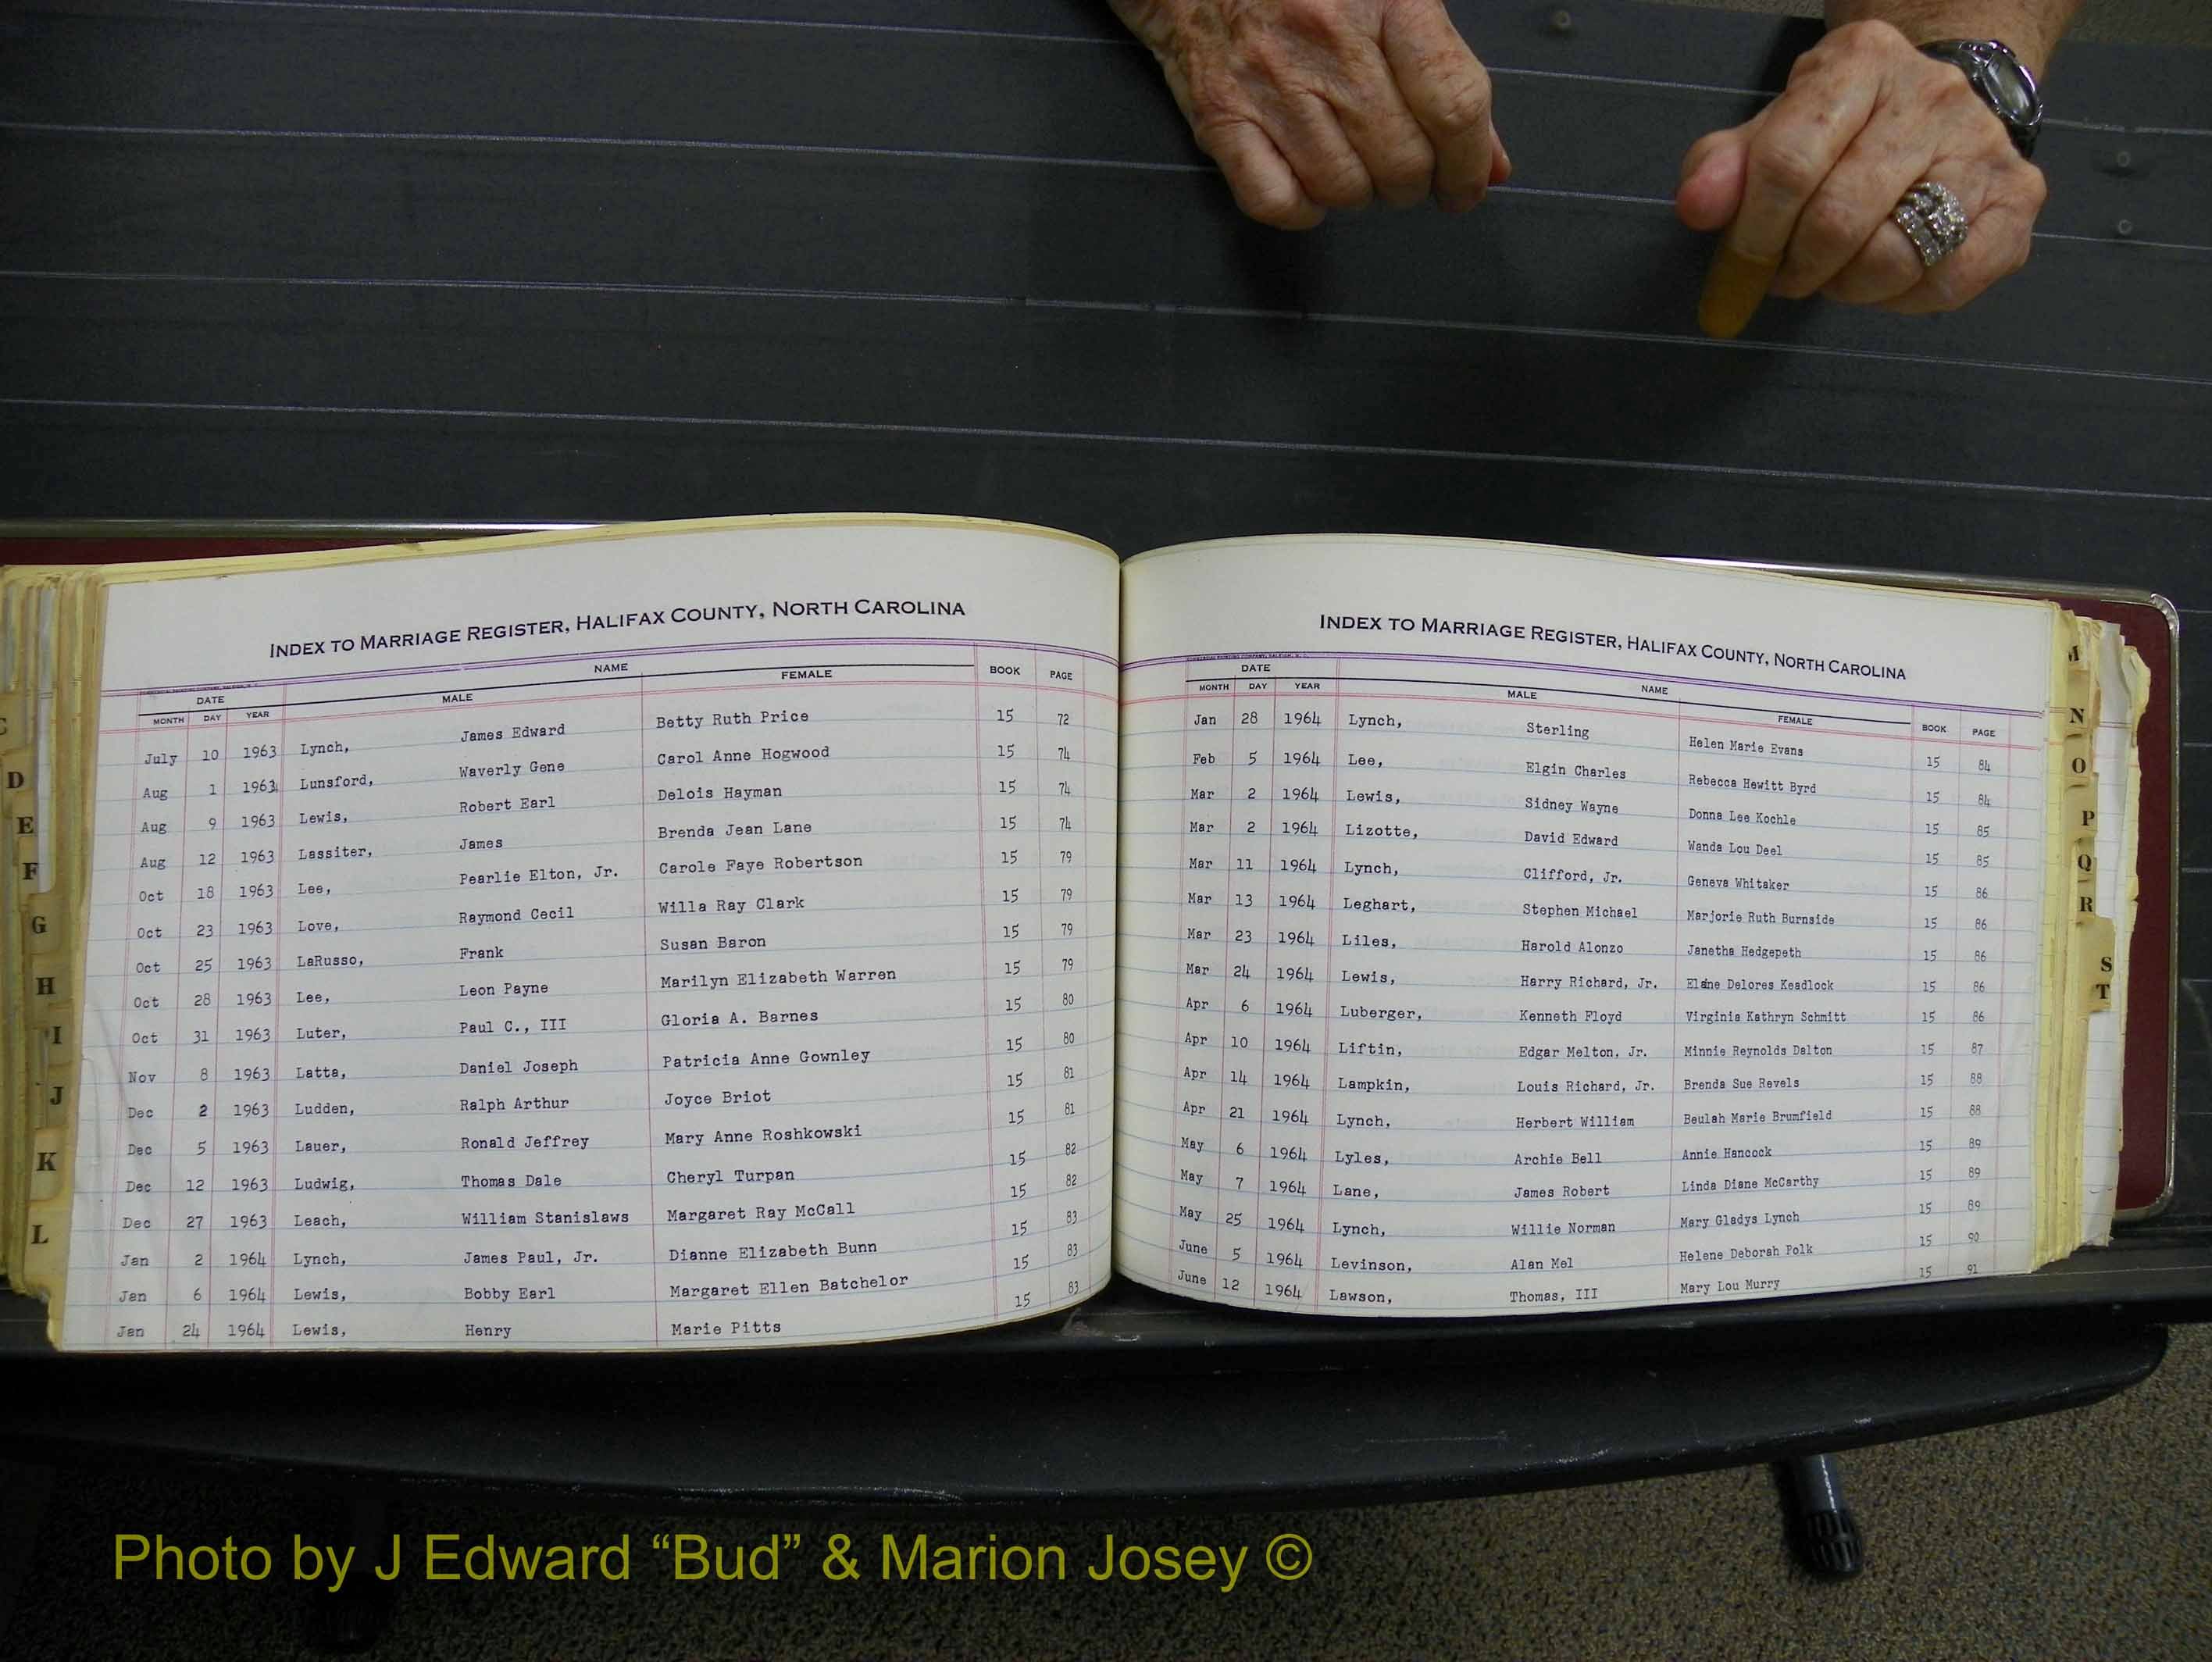 INDEX TO MARRIAGE REGISTER, HALIFAX COUNTY, NORTH CAROLINA
DATE NAME BOOK PAGE
MONTH DAY YEAR MALE FEMALE
July 10 1963 Lynch, James Edward Betty Ruth Price 15 72
Aug 1 1963 Lunsford, Waverly Gene Carol Anne Hogwood 15 74
Aug 9 1963 Lewis, Robert Earl Delois Hayman 15 74
Aug 12 1963 Lassiter, James Brenda Jean Lane 15 74
Oct 18 1963 Lee, Pearlie Elton, Jr. Carole Faye Robertson 15 79
Oct 23 1963 Love, Raymond Cecil Willa Ray Clark 15 79
Oct 25 1963 LaRusso, Frank Susan Baron 15 79
Oct 28 1963 Lee, Leon Payne Marilyn Elizabeth Warren 15 79
Oct 31 1963 Luter, Paul C., III Gloria A. Barnes 15 80
Nov 8 1963 Latta, Daniel Joseph Patricia Anne Gownley 15 80
Dec 2 1963 Ludden, Ralph Arthur Joyce Briot 15 81
Dec 5 1963 Lauer, Ronald Jeffrey Mary Anne Roshkowski 15 81
Dec 12 1963 Ludwig, Thomas Dale Cheryl Turpan 15 82
Dec 27 1963 Leach, William Stanislaws Margaret Ray McCall 15 82
Jan 2 1964 Lynch, James Paul, Jr. Dianne Elizabeth Bunn 15 83
Jan 6 1964 Lewis, Bobby Earl Margaret Ellen Batchelor 15 83
Jan 24 1964 Lewis, Henry Marie Pitts 15 83
D
E
F
G
H
I
J
K
L
INDEX TO MARRIAGE REGISTER, HALIFAX COUNTY, NORTH CAROLINA
DATE NAME
MONTH DAY YEAR MALE FEMALE BOOK PAGE
Jan 28 1964 Lynch, Sterling Helen Marie Evans 15 84
Feb 5 1964 Lee, Elgin Charles Rebecca Hewitt Byrd 15 84
Mar 2 1964 Lewis, Sidney Wayne Donna Lee Kochle 15 85
Mar 2 1964 Lizotte, David Edward Wanda Lou Deel 15 85
Mar 11 1964 Lynch, Clifford, Jr. Geneva Whitaker 15 86
Mar 13 1964 Leghart, Stephen Michael Marjorie Ruth Burnside 15 86
Mar 23 1964 Liles, Harold Alonzo Janetha Hedgepeth 15 86
Mar 24 1964 Lewis, Harry Richard, Jr. Delores Keadlock 15 86
Apr 6 1964 Luberger, Kenneth Floyd Virginia Kathryn Schmitt 15 86
Apr 10 1964 Liftin, Edgar Melton, Jr. Minnie Reynolds Dalton 15 87
Apr 14 1964 Lampkin, Louis Richard, Jr. Brenda Sue Revels 15 88
Apr 21 1964 Lynch, Herbert William Beulah Marie Brumfield 15 88
May 6 1964 Lyles, Archie Bell Annie Hancock 15 89
May 7 1964 Lane, James Robert Linda Diane McCarthy 15 89
May 25 1964 Lynch, Willie Norman Mary Gladys Lynch 15 89
June 5 1964 Levinson, Alan Mel Helene Deborah Polk 15 90
June 12 1964 Lawson, Thomas, III Mary Lou Murry 15 91
M
N
O
P
Q
R
S
T
Photo by J Edward “Bud” & Marion Josey ©